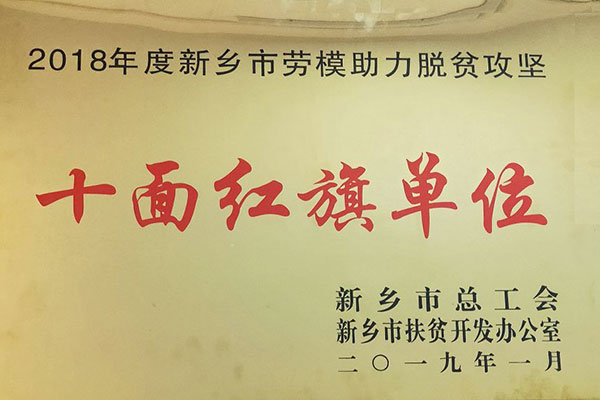 2018年度新乡市劳模助力脱贫攻坚
十面红旗单位
新乡市总工会
新乡市扶贫开发办公室
二〇一九年一月